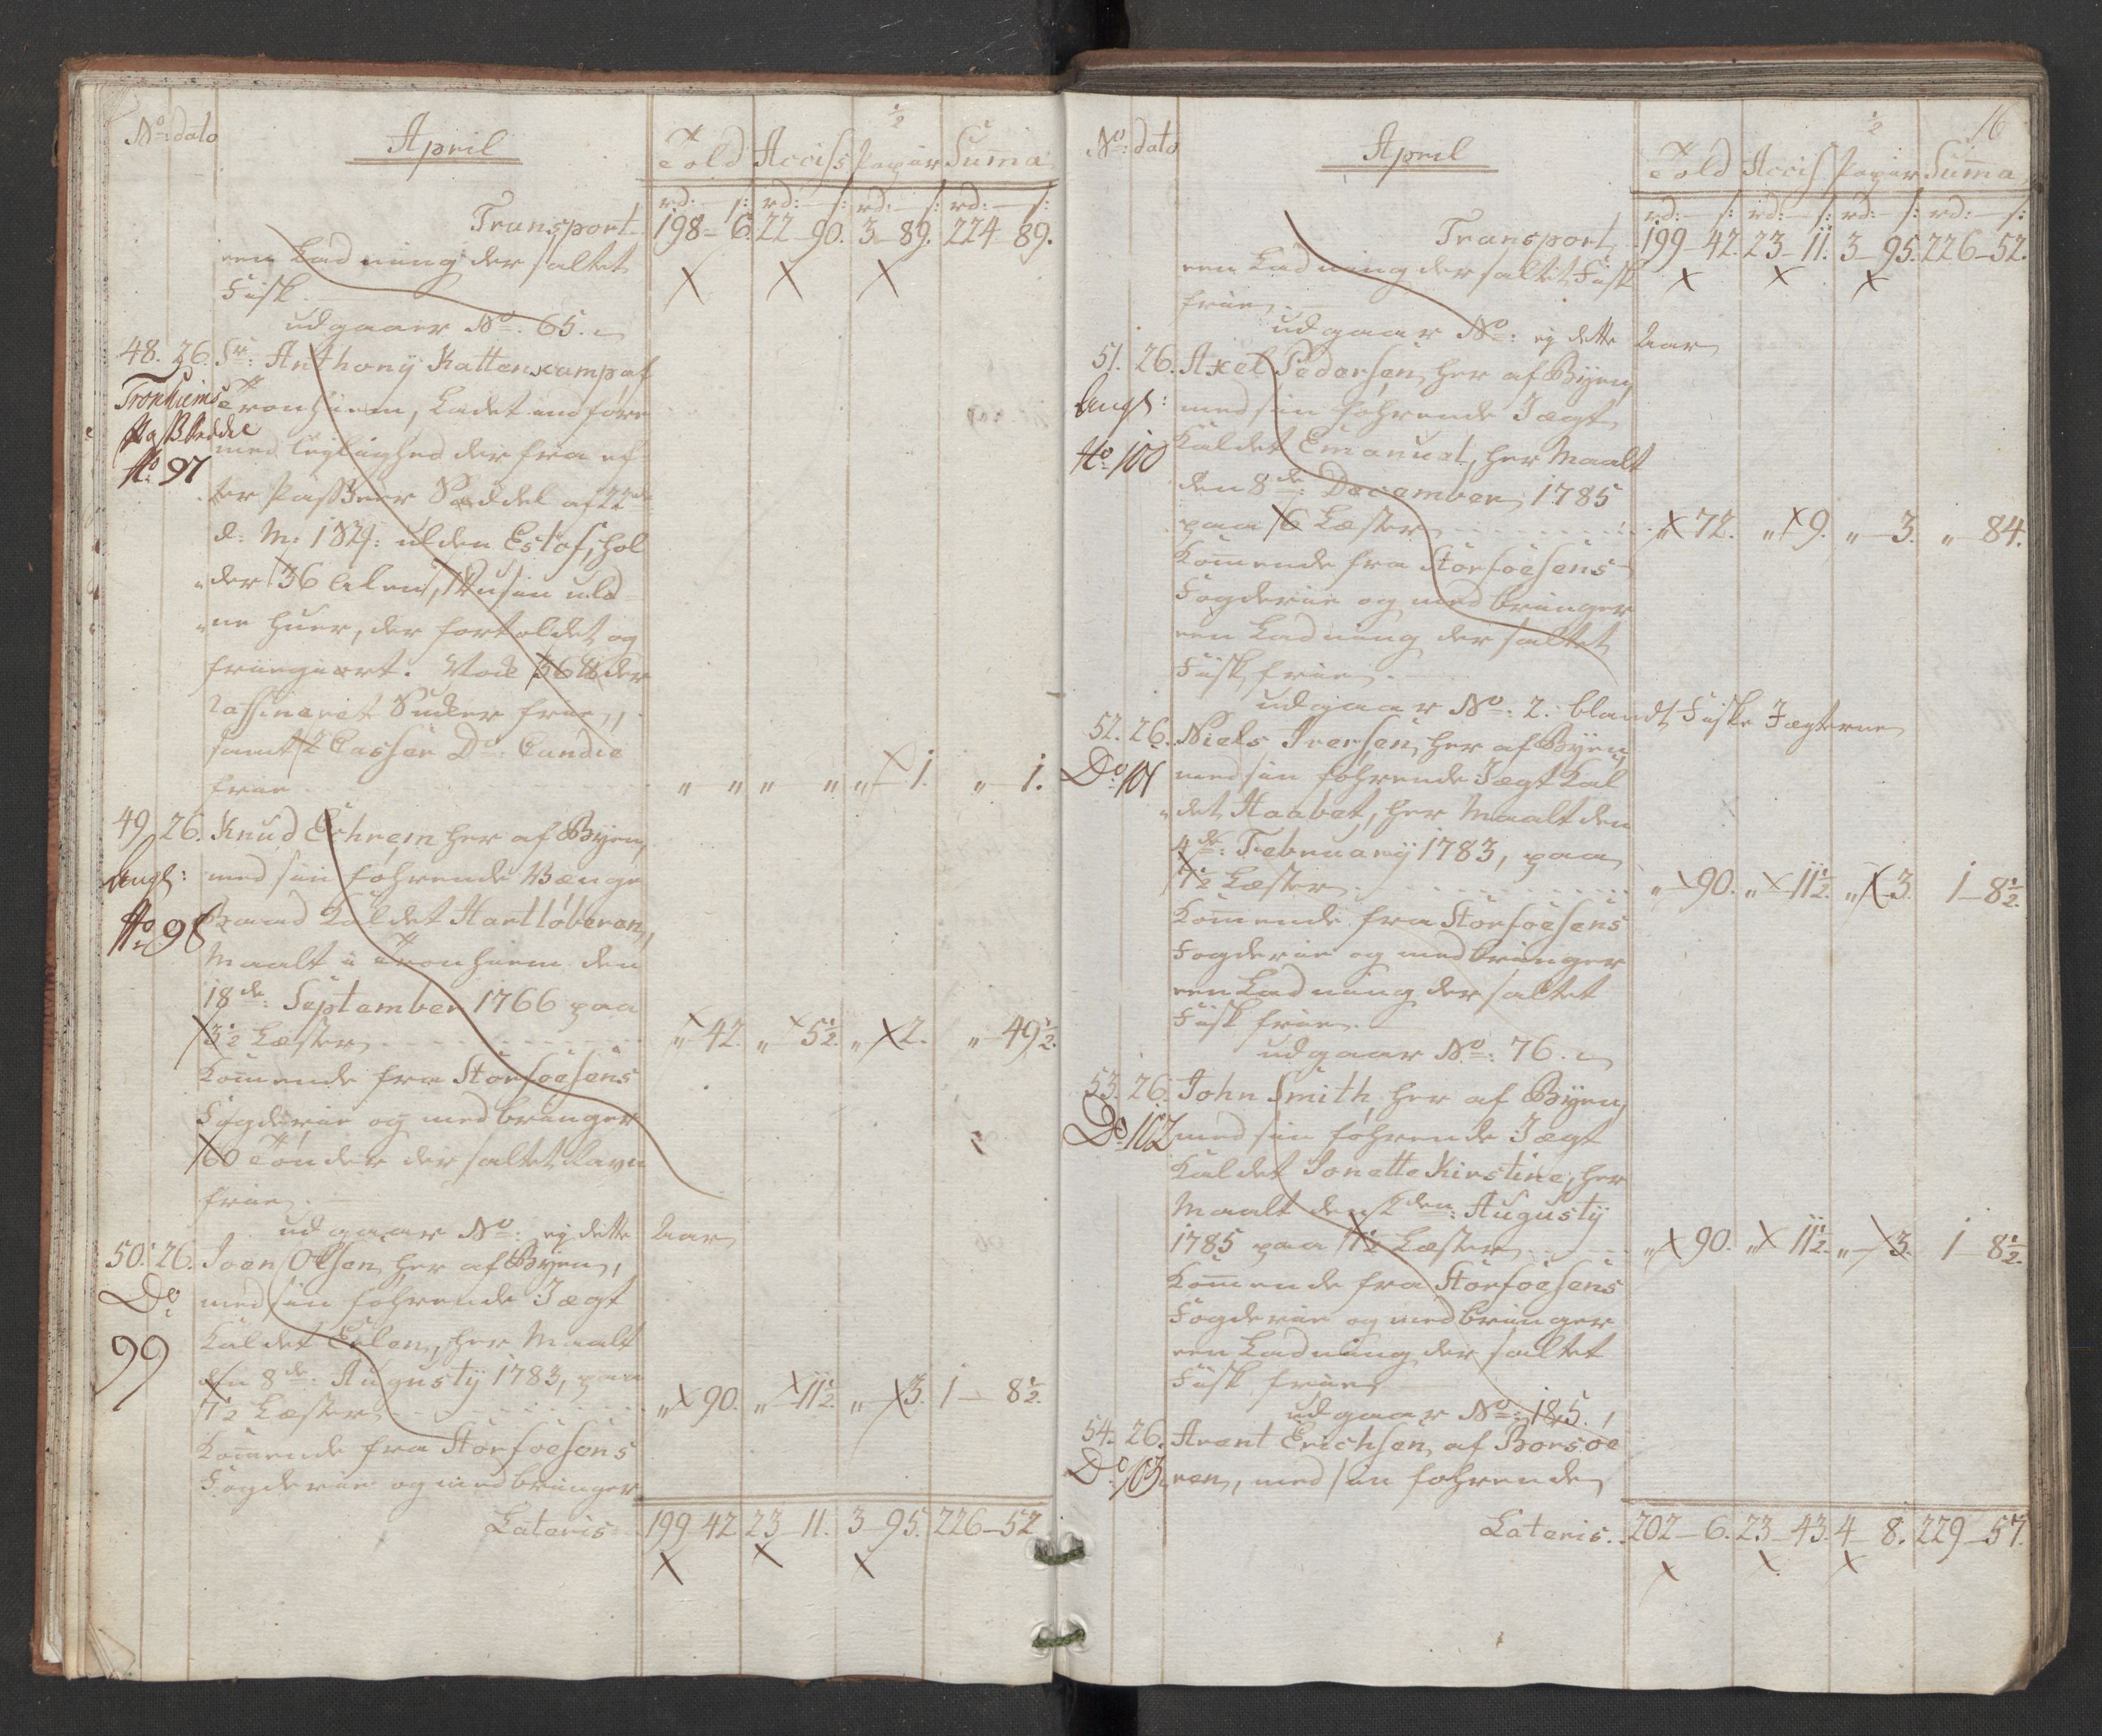 No: dato April Told Acciss Papiir Suma
½
rd: s: rd: s: rd: s: rd: s:
Transport 198-6. 22-90. 3-89. 224-89.
een Ladning der saltet
Fisk.
udgaaer No. 65.
48. 26. Sr: Anthony Kattenkamp af
Tronhiems Tronhiem, Ladet indføre
PasSedde med leylighed der fra ef
No. 97
ter Passeer Seddel af 22de
d: M: 1 ulden Estof, hol
der 36 Alen, 1 Dusin uld
ne Huer, der fortoldet og
friegiort. Nock 36 ℔ der
raffineret Sucker frie,
samt 2 Casser Do. Candie
frie " " " " " 1. " 1.
49. 26. Knud Echrem her af Byen,
Angl: med sin føhrende Wænge
No. 98 Baad Kaldet Hartløberen,
Maalt i Tronhiem den
18de: September 1766 paa
3½ Læster " 42. " 5½. " 2. " 49½.
Komende fra Storfoesens
Fogderie og medbringer
60 Tønder der saltet Lavn
frie.
udgaar No: ej dette Aar
50. 26. Joen Olsen her af Byen,
Do med sin føhrende Jægt
99 Kaldet Ellen, her Maalt
den 8de: Augusty 1783, paa
7½ Læster " 90. " 11½. " 3. 1-8½.
Komende fra Storfoesens
Fogderie og medbringer
Lateris 199-42. 23-11. 3-95. 226-52.
16
½
No: dato April Told Acciss Papiir Suma
rd: s: rd: s: rd: s: rd: s:
Transport 199-42. 23-11. 3-95. 226-52.
een Ladning der saltet Fisk
frie.
udgaar No: ej dette Aar
51. 26. Axel Pedersen, her af Byen,
Angl: med sin føhrende Jægt
No 100 Kaldet Emanuel, her Maalt
den 8de: December 1785
paa 6 Læster " 72. " 9. " 3. " 84.
Komende fra Storfoesens
Fogderie og medbringer
een Ladning der saltet
Fisk frie.
udgaar No: 2. blandt Fiske Jægterne
52. 26. Niels Iversen, her af Byen,
Do 101 med sin føhrende Jægt Kal
det Haabet, her Maalt den
4de: February 1783, paa
7½ Læster " 90. " 11½. " 3. 1-8½.
Komende fra Storfoesens
Fogderie og medbringer
een Ladning der saltet
Fisk frie.
udgaar No: 76.
53. 26. John Smith, her af Byen,
Do. 102 med sin føhrende Jægt
Kaldet Jonette Kirstine, her
Maalt den 2den: Augusty
1785 paa 7½ Læster " 90. " 11½. " 3. 1 8½.
Komende fra Storfoesens
Fogderie og medbringer
een Ladning der saltet
Fisk frie
udgaar No: 185.
54. 26. Arent Erichsen, af Borsøe
Do. 103. ren, med sin føhrende
Lateris. 202-6. 23-43. 4-8. 229-57.